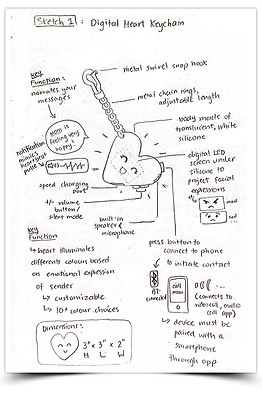 Sketch 1 : Digital Heart Keychain
metal swivel snap hook
key
Function:
narrates your
messages
metal chain rings,
adjustable length
Mom is
feeling very
happy!
notification
mimics
heartbeat
pulse
body made of
translucent, white
silicone
digital LED
screen under
silicone to
project facial
expressions
mad
sad
speed charging
port
+/- volume
button/
silent mode
built-in
speaker &
microphone
key
Function
↳ heart illuminates
different colours based
on emotional expression
of sender
↳ customizable
↳ 10+ colour choices
press button to
connect to phone
to initiate contact
BT
connected
call
mom
(connects to
video call, audio
call app)
↳ device must be
paired with a
smartphone
through app
Dimensions:
3" x 3" x 2"
H L W